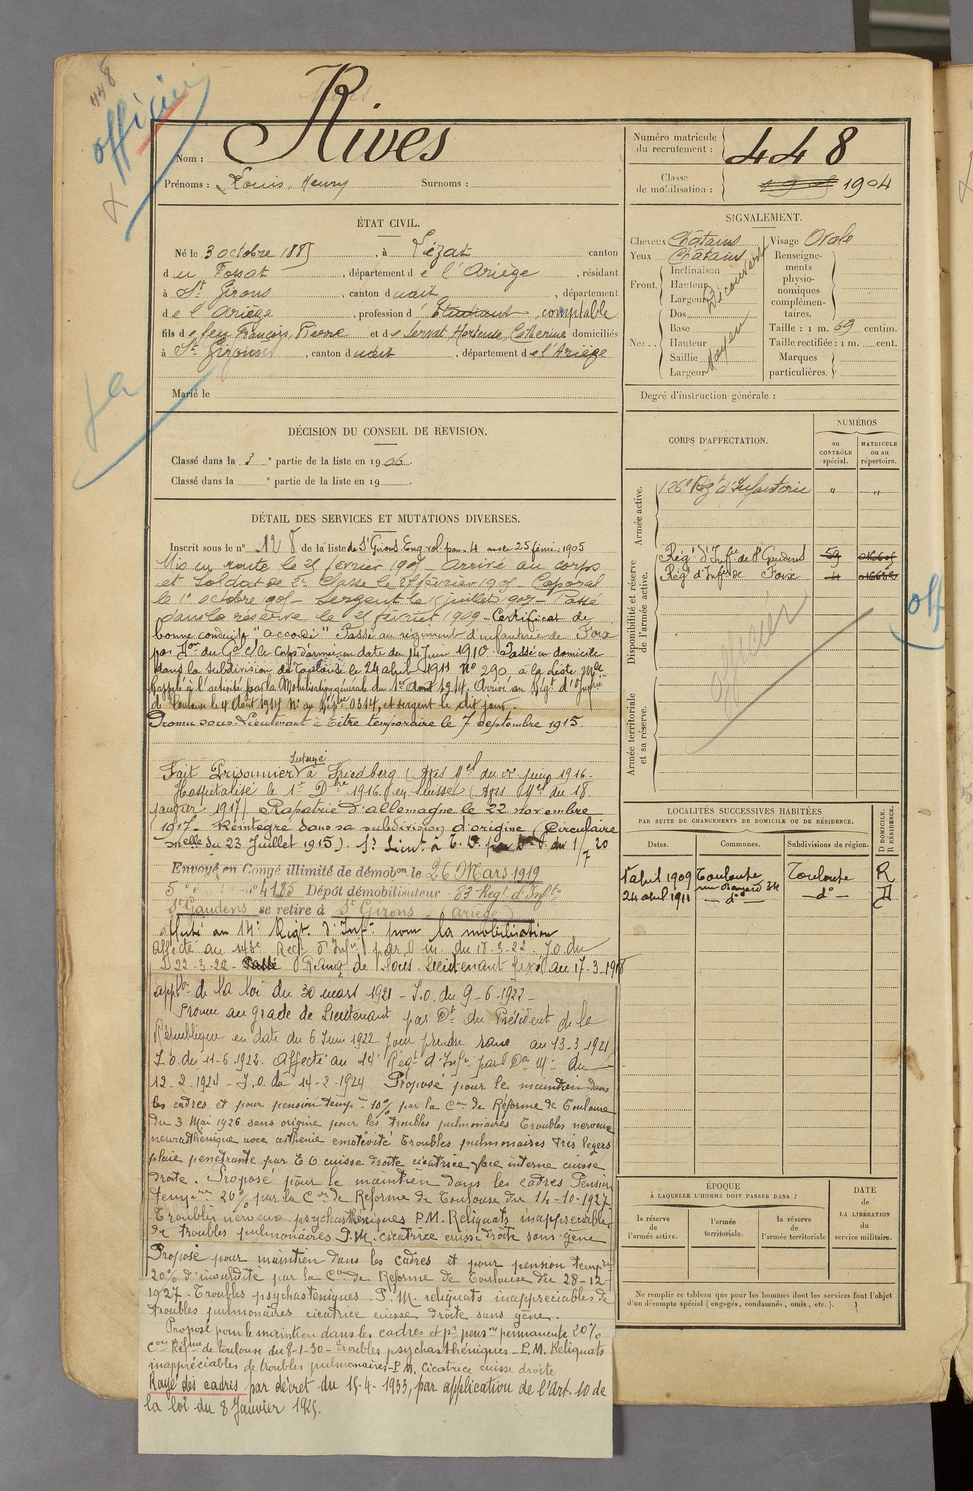 448
officier
Rives
Nom :
Prénoms : Louis, Henry Surnoms :
Numéro matricule du recrutement : 448
Classe de mobilisation : 1904
ÉTAT CIVIL.
Né le 3 octobre 1885, à Lézat canton
du Fossat, département de l'Ariège, résidant
à St Girons, canton dudit, département
de l'Ariège, profession d'Etudiant comptable
fils de feu François, Pierre et de Servat Hortense, Catherine domiciliés
à St Girons, canton dudit, département de l'Ariège
Marié le
SIGNALEMENT.
Cheveux Châtains
Yeux Châtains
Front. Inclinaison
Hauteur
Largeur
Découvert
Nez. Dos
Base
Hauteur
Saillie
Largeur
Moyen
Visage Ovale
Renseignements physionomiques complémentaires.
Taille : 1 m. 69 centim.
Taille rectifiée : 1 m. cent.
Marques particulières.
Degré d'instruction générale :
DÉCISION DU CONSEIL DE REVISION.
Classé dans la 3e partie de la liste en 1906.
Classé dans la e partie de la liste en 19
DÉTAIL DES SERVICES ET MUTATIONS DIVERSES.
Inscrit sous le n° 128 de la liste de St Girons Eng. vol. pour 4 ans le 25 févr. 1905
Mis en route le 25 février 1905 - Arrivé au corps
et Soldat de 2e Classe le février 1905 - Caporal
le 1er octobre 1905 - Sergent le juillet 1907 - Passé
dans la réserve le 25 février 1909 - Certificat de
bonne conduite "accordé" Passé au régiment d'infanterie de Foix
par Don du Gal Ct le Corps d'armée en date du 14 Juin 1910. Passé en domicile
dans la subdivision de Toulouse le 24 abril 1911 N° 290 à la liste Mle
Rappelé à l'activité par la Mobilisation générale du 1er Août 1914. Arrivé au Régt d'Infrie
de Toulouse le 4 Août 1914 N° au Réptre 0314, et sergent le dit jour.
Promu sous-Lieutenant à titre temporaire le 7 septembre 1915.
Fait Prisonnier Interné à Friedberg (Avis Mel du juin 1916.
Hospitalisé le 1er Dbre 1916 en Suisse (Avis Mel du 18
janvier 1917) Rapatrié d'allemagne le 22 novembre
1917 - Réintégré dans sa subdivision d'origine (Circulaire
Mielle du 23 Juillet 1915). S. Lieut. à T. D.
Envoyé en Congé illimité de démobon le 26 Mars 1919
4185 Dépôt démobilisateur 83 Regt d'Infie
St Gaudens se retire à St Girons - Ariège
affecté au 14e Régt d'Infie pour la mobilisation
Affecté au 143e Regt d'Infie par D. M. du 17-3-22 - J.O du
22-3-22 - Passé Rang de Sous-Lieutenant fixé au 17-3-1918
appon de la loi du 30 mars 1921 - J.O. du 9-6-1922 -
Promu au grade de Lieutenant par Dt du Président de la
République en date du 6 Juin 1922 pour prendre rang au 13-3-1921
J.O. du 11-6-1922. Affecté au 14e Régt d'Infie par Don Mle du
12-2-1924 - J.O. du 14-2-1924 Proposé pour le maintien dans
les cadres et pour pension tempre 10% par la Con de Réforme de Toulouse
du 3 Mai 1926 sans origine pour les troubles pulmonaires Troubles nerveux
neurasthénique avec asthénie emotivité Troubles pulmonaires très légers
plaie pénétrante par E O cuisse droite cicatrice face interne cuisse
droite. Proposé pour le maintien dans les cadres Pension
tempre 20% par la Con de Réforme de Toulouse du 14-10-1927
Troubles nerveux psychasthéniques P.M. Reliquats inappréciables
de troubles pulmonaires P.M. cicatrice cuisse droite sans gêne
Proposé pour maintien dans les cadres et pour pension tempre
20% d'invalidité par la Con de Réforme de Toulouse du 28-12
1927. Troubles psychasteniques. P.M. reliquats inappreciables de
troubles pulmonaires cicatrice cuisse droite sans gêne.
Proposé pour le maintien dans les cadres et pr pension permanente 20%
Con Réfme de Toulouse du 8-1-30 - troubles psychasthéniques - P.M. Reliquats
inappréciables de troubles pulmonaires - P.M. Cicatrice cuisse droite
Rayé des cadres par décret du 15-4-1933, par application de l'Art. 10 de
la loi du 8 Janvier 1925.
CORPS D'AFFECTATION.
NUMÉROS
au CONTRÔLE spécial.
MATRICULE ou au répertoire.
Armée active.
126e Régt d'Infanterie " "
Disponibilité et réserve de l'armée active.
Régt d'Infie de St Gaudens 59
Régt d'Infie de Foix 4
officier
off
Armée territoriale et sa réserve.
LOCALITÉS SUCCESSIVES HABITÉES
PAR SUITE DE CHANGEMENTS DE DOMICILE OU DE RÉSIDENCE.
D DOMICILE. R RÉSIDENCE.
Dates. Communes. Subdivisions de région.
1er abril 1909 Toulouse Toulouse R
24 abril 1911 - do - - do - D
ÉPOQUE
À LAQUELLE L'HOMME DOIT PASSER DANS :
la réserve de l'armée active.
l'armée territoriale.
la réserve de l'armée territoriale
DATE de LA LIBÉRATION du service militaire.
Ne remplir ce tableau que pour les hommes dont les services font l'objet
d'un décompte spécial (engagés, condamnés, omis, etc.).